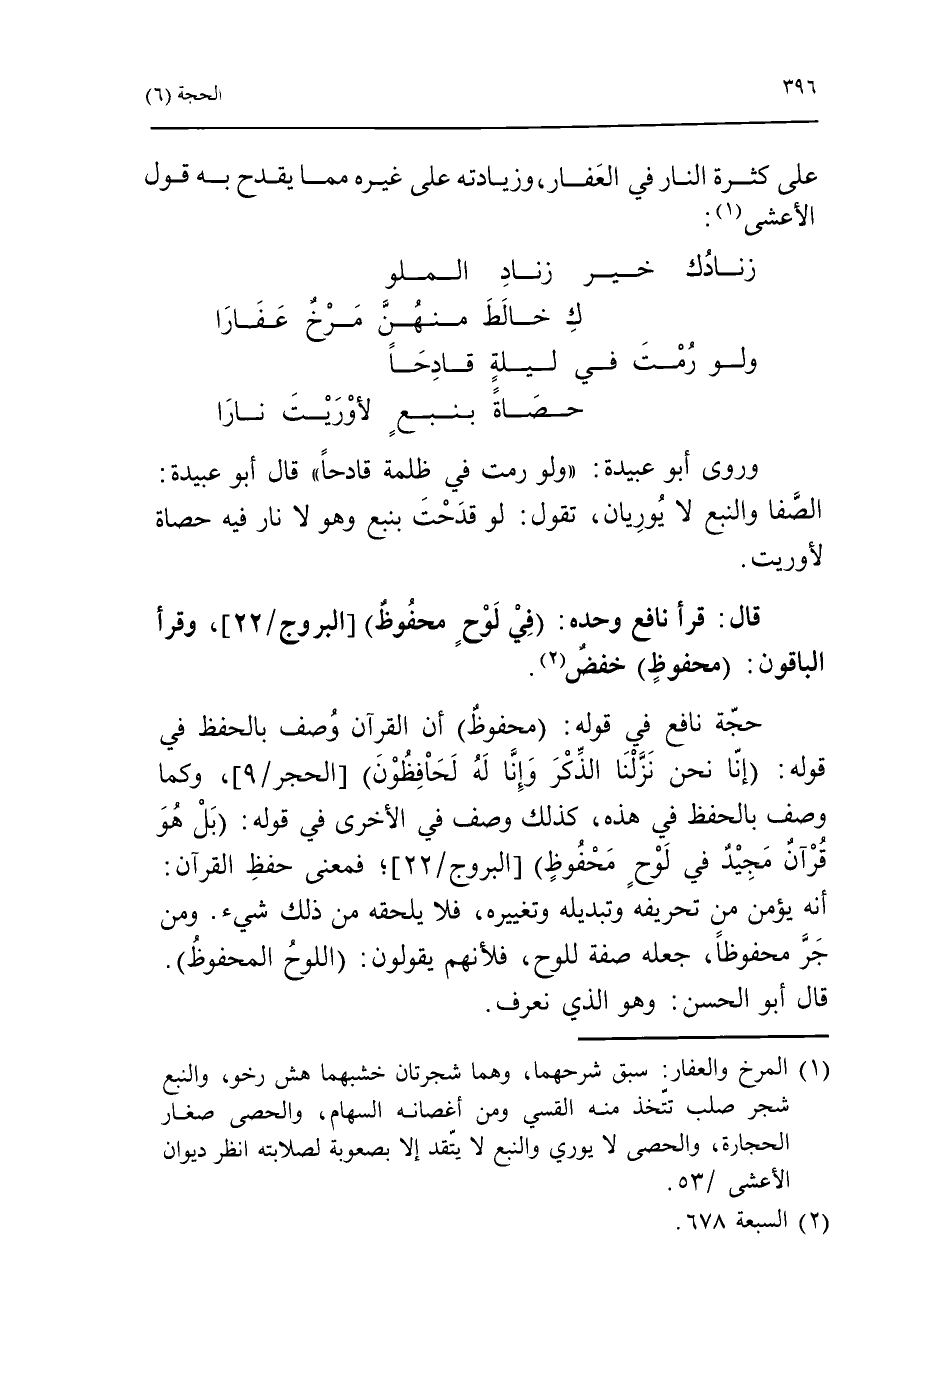 ٣٩٦
الحجة (٦)
على كثرة النار في العَفار، وزيادته على غيره مما يقدح به قول
الأعشى(١):
زنادُك خير زنادِ الملو
كِ خالَطَ منهُنَّ مَرْخٌ عَفَارَا
ولو رُمْتَ في ليلةٍ قادِحَاً
حصَاةً بنبعٍ لأوْرَيْتَ نارَا
وروى أبو عبيدة: «ولو رمت في ظلمة قادحاً» قال أبو عبيدة:
الصَّفا والنبع لا يُورِيان، تقول: لو قدَحْتَ بنبع وهو لا نار فيه حصاة
لأوريت.
قال: قرأ نافع وحده: (فِيْ لَوْحٍ محفُوظٌ) [البروج/٢٢]، وقرأ
الباقون: (محفوظٍ) خفضٌ(٢).
حجّة نافع في قوله: (محفوظٌ) أن القرآن وُصف بالحفظ في
قوله: (إنّا نحن نَزَّلْنَا الذِّكْرَ وَإِنَّا لَهُ لَحَاْفِظُوْنَ) [الحجر/٩]، وكما
وصف بالحفظ في هذه، كذلك وصف في الأخرى في قوله: (بَلْ هُوَ
قُرْآنٌ مَجِيْدٌ في لَوْحٍ مَحْفُوظٍ) [البروج/٢٢]؛ فمعنى حفظِ القرآن:
أنه يؤمن من تحريفه وتبديله وتغييره، فلا يلحقه من ذلك شيء. ومن
جَرَّ محفوظاً، جعله صفة للوح، فلأنهم يقولون: (اللوحُ المحفوظُ).
قال أبو الحسن: وهو الذي نعرف.
(١) المرخ والعفار: سبق شرحهما، وهما شجرتان خشبهما هش رخو، والنبع
شجر صلب تتّخذ منه القسي ومن أغصانه السهام، والحصى صغار
الحجارة، والحصى لا يوري والنبع لا يتّقد إلا بصعوبة لصلابته انظر ديوان
الأعشى /٥٣.
(٢) السبعة ٦٧٨.